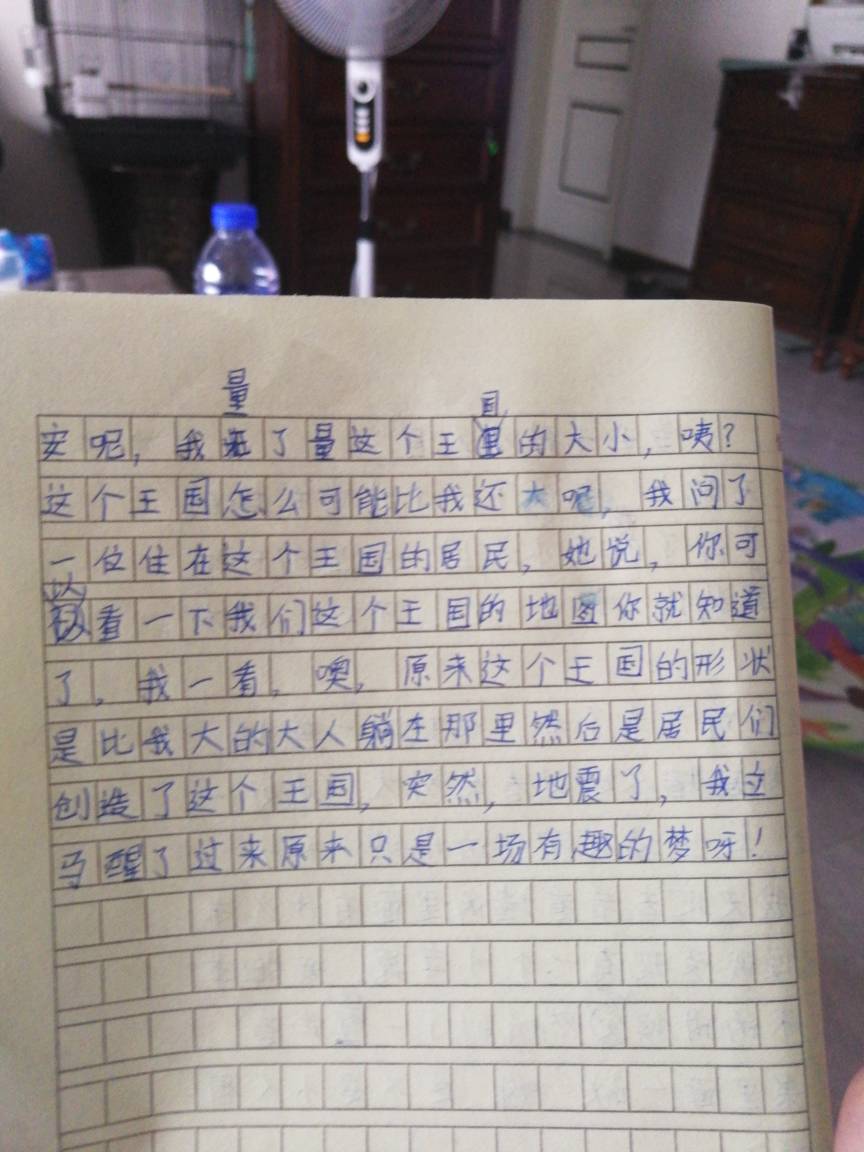 量 国
安呢，我量了量这个王国的大小，咦？
这个王国怎么可能比我还大呢，我问了
一位住在这个王国的居民，她说，你可
以看一下我们这个王国的地图你就知道
了，我一看，噢，原来这个王国的形状
是比我大的大人躺在那里然后是居民们
创造了这个王国，突然，地震了，我立
马醒了过来原来只是一场有趣的梦呀！